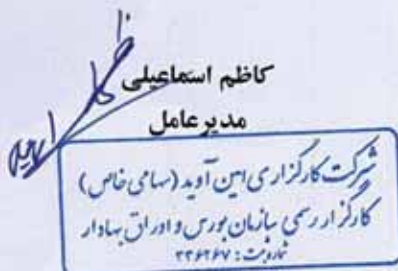 کاظم اسماعیلی
مدیرعامل
شرکت کارگزاری امین آوید (سهامی خاص)
کارگزار رسمی سازمان بورس و اوراق بهادار
شماره ثبت: ۲۳۶۲۶۷